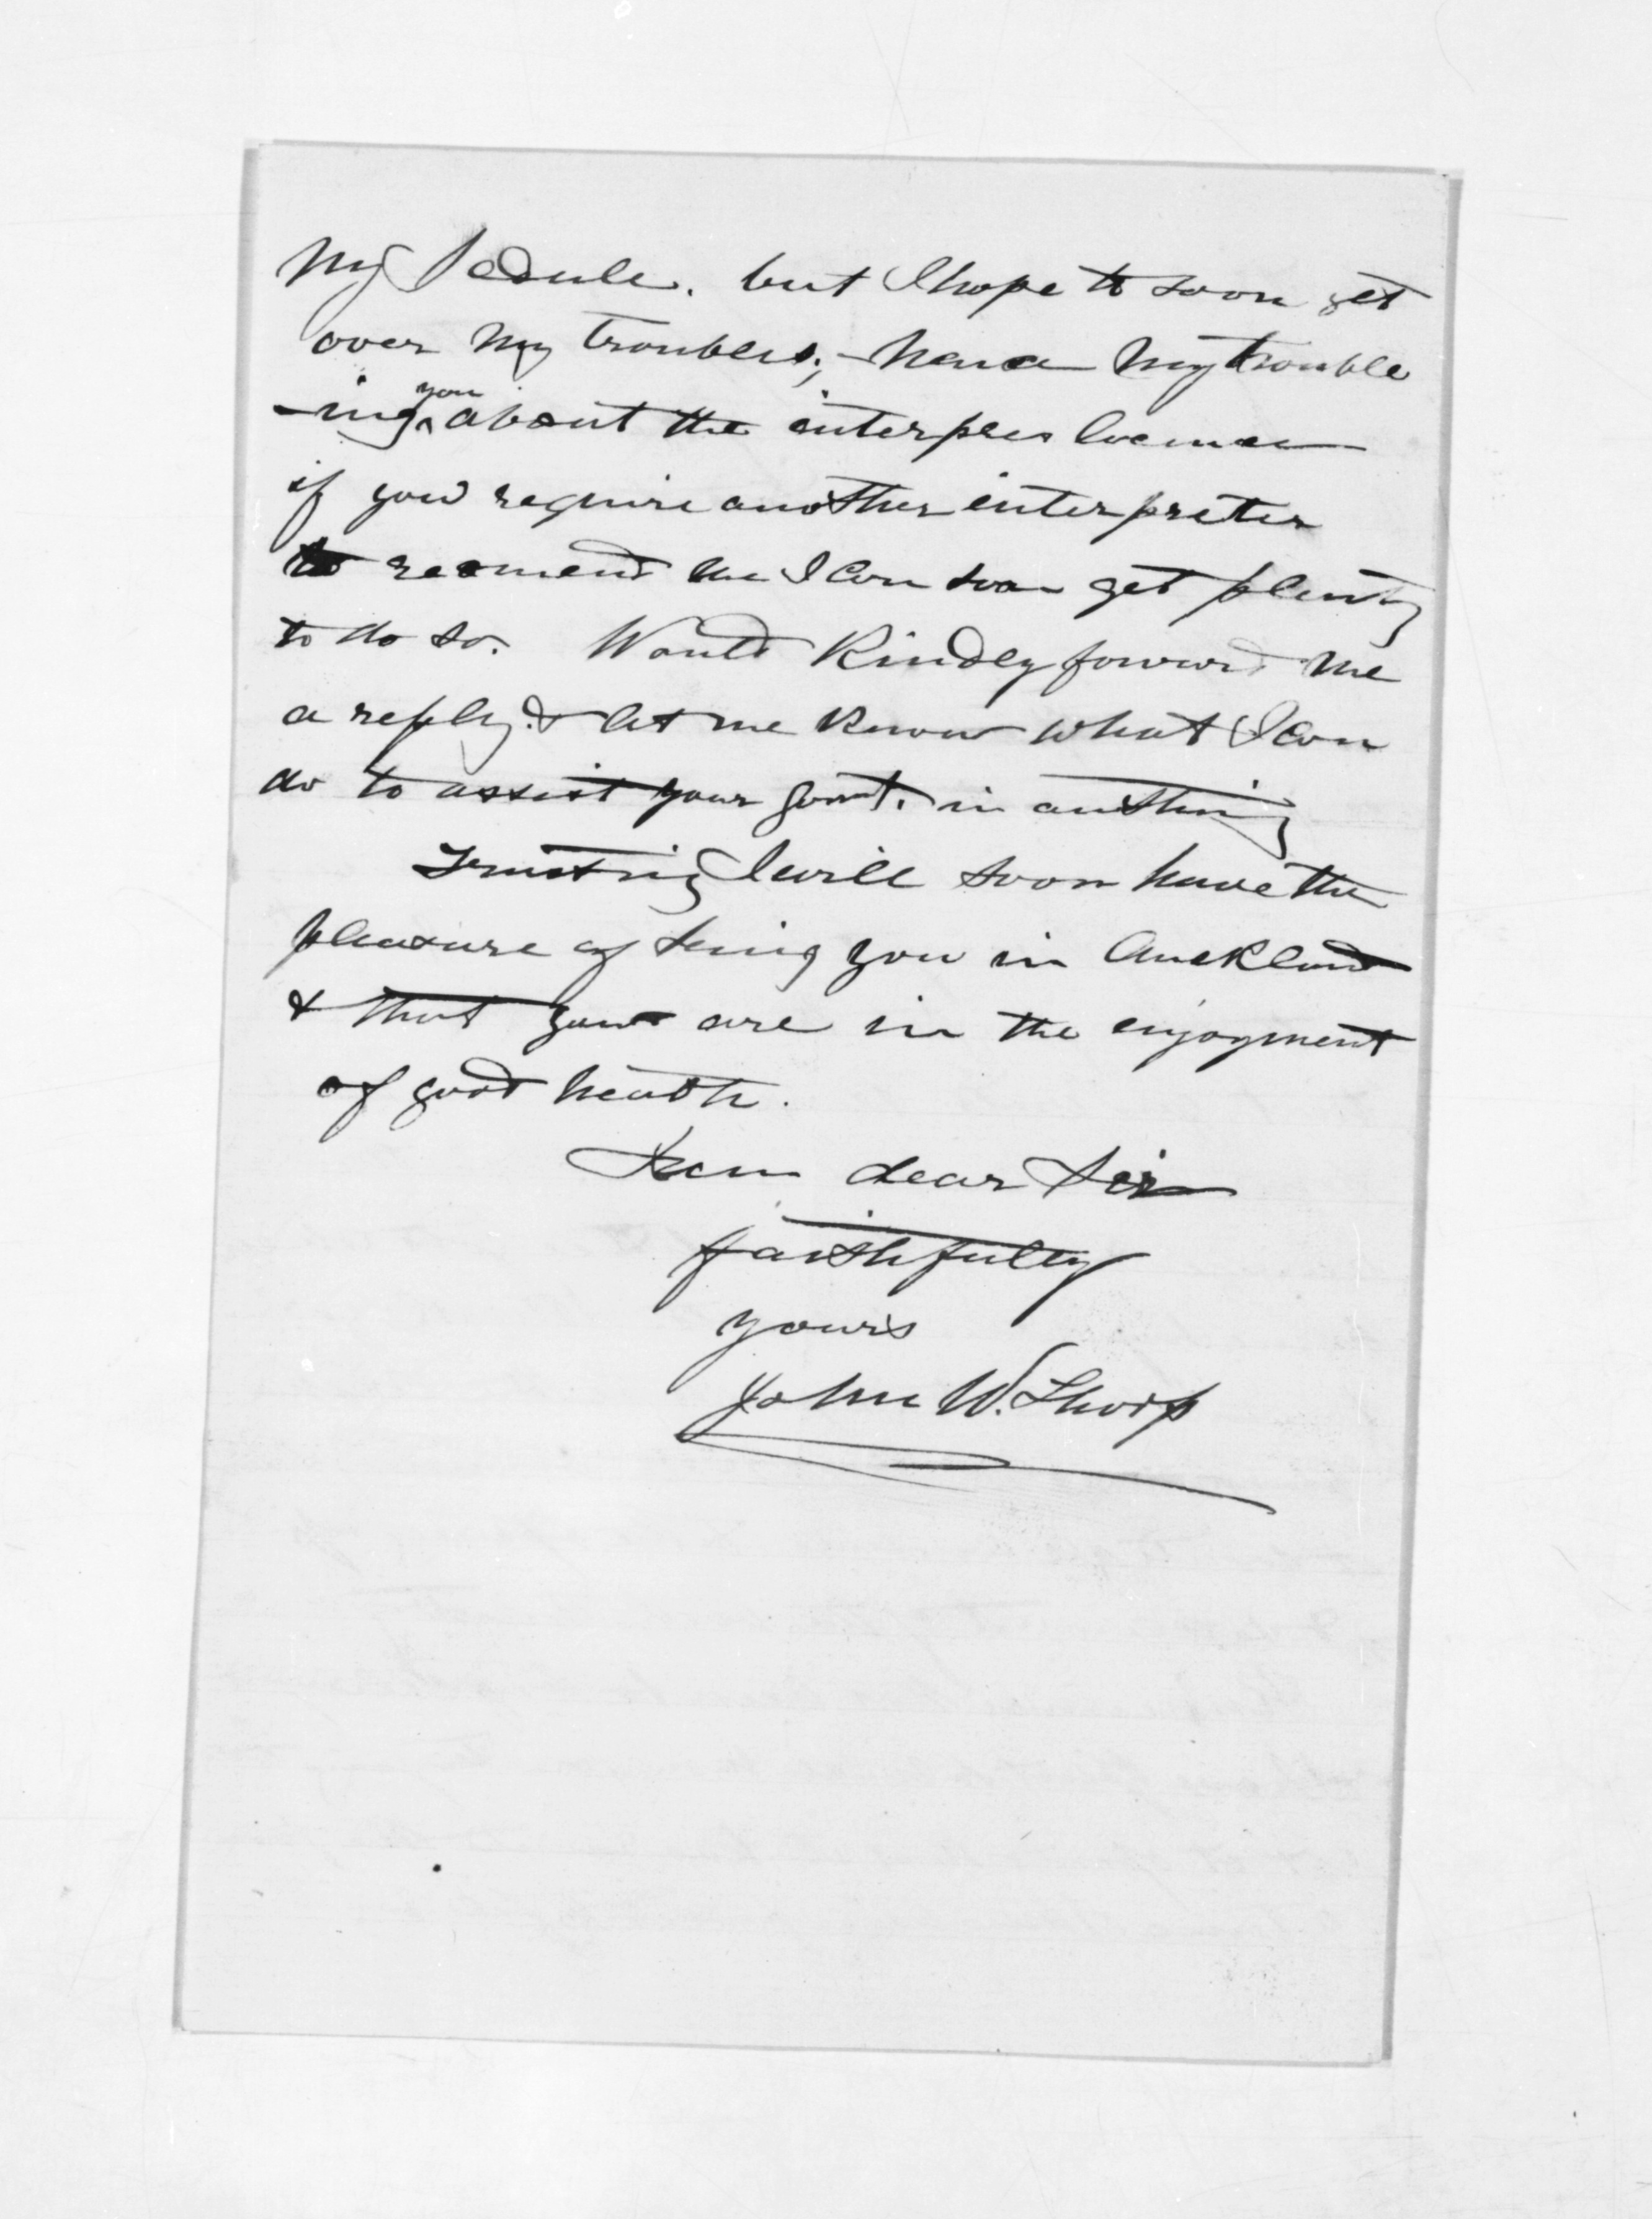 My Schedule. but I hope to soon get
over my troubles; - hence my trouble
-ing you about the interpres license
if you require another interpreter
to recomend me I can soon get plenty
to do so. Would Kindly forward me
a reply. & let me Know what I can
do to assist your Govmt. in anything
Trusting I will soon have the
pleasure of seeing you in Auckland
& that you are in the enjoyment
of good health.
I am dear Sir
faithfully
yours
John W. Thorp